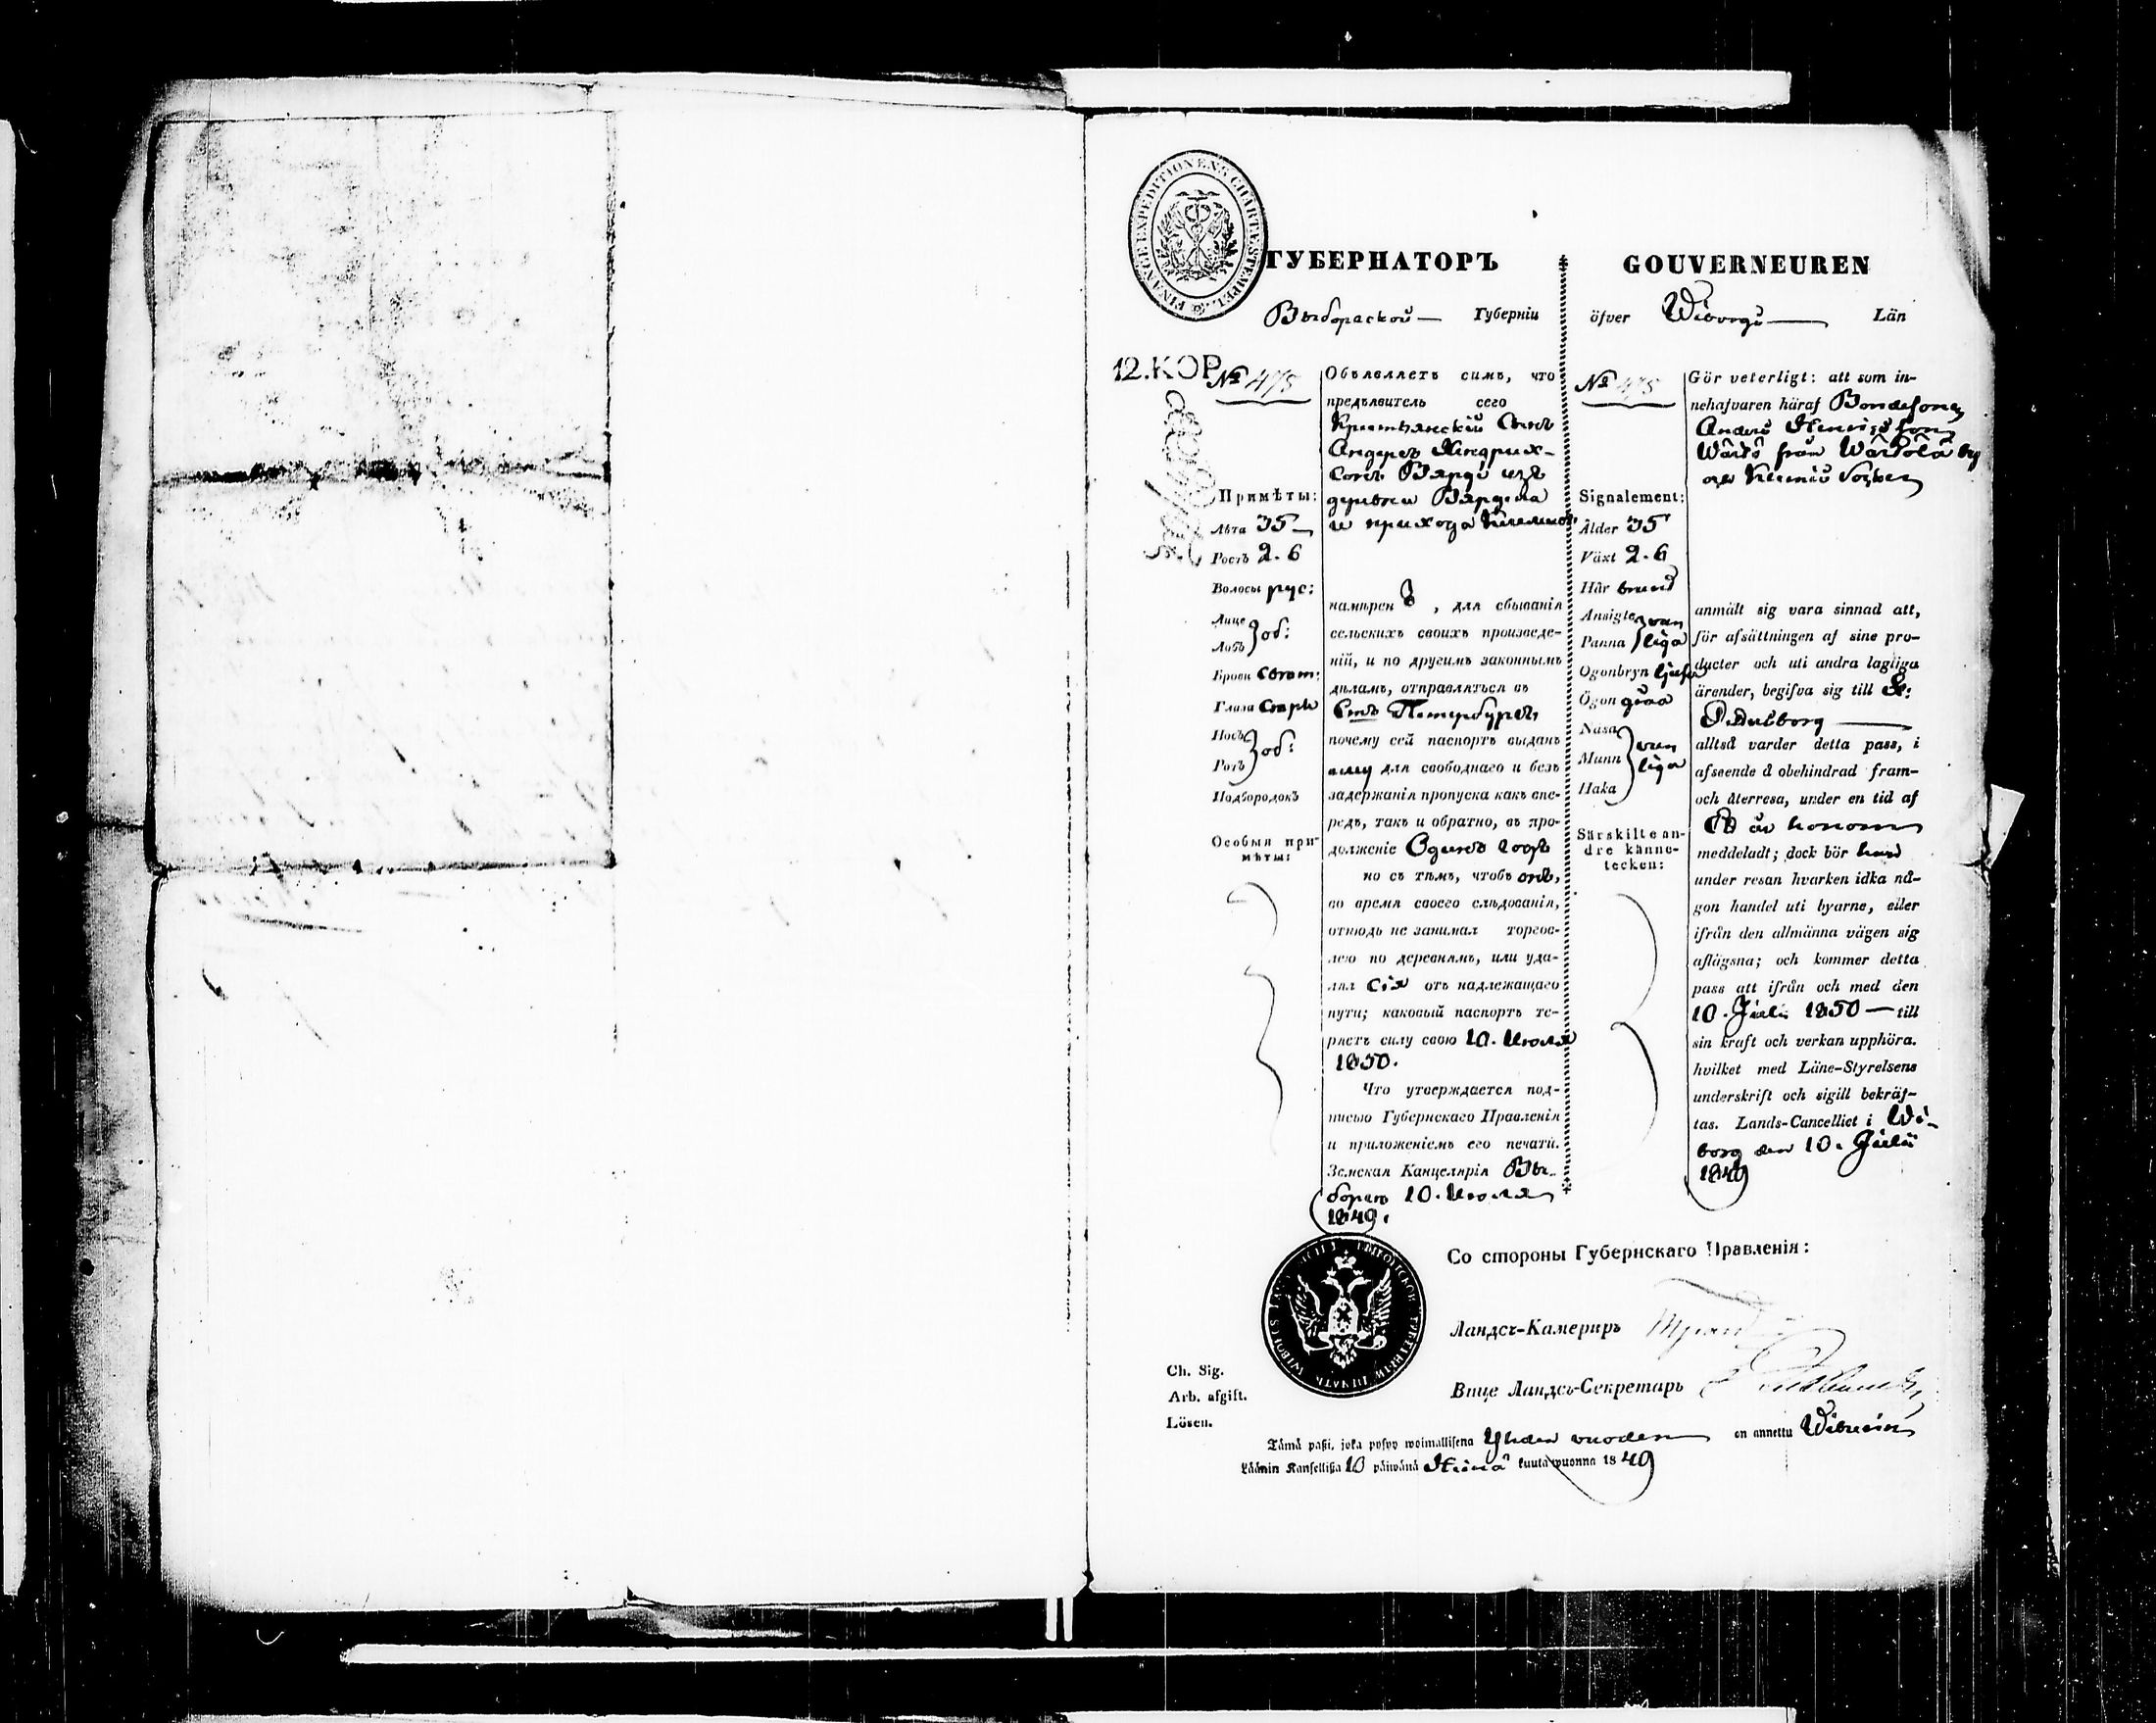 FINANCE EXPEDITIONENS CHARTÆ STEMPEL
ГУБЕРНАТОРЪ
Выборгской Губерніи
12.КОР
№ 475
Объявляетъ симъ, что
предъявитель сего
Крестьянскій Сынъ
Андерсъ Хиндрих-
сонъ Вярди изъ
деревни Вярдела
и прихода
Примѣты:
Лѣта 35
Ростъ 2.6
Волосы рус:
Лице
Лобъ } об:
Брови Свѣт:
Глаза Сѣрые
Носъ
Ротъ } об:
Подбородокъ
Особыя при-
мѣты:
намѣренъ, для сбыванія
сельскихъ своихъ произведе-
ній, и по другимъ законнымъ
дѣламъ, отправляться въ
Стъ Петербургъ,
почему сей паспортъ выданъ
ему для свободнаго и безъ
задержанія пропуска какъ впе-
редъ, такъ и обратно, въ про-
долженіе Одинъ годъ
но съ тѣмъ, чтобъ онъ,
во время своего слѣдованія,
отнюдь не занимал торгов-
лею по деревнямъ, или уда-
лял Ся отъ надлежащаго
пути; каковый паспортъ те-
ряетъ силу свою 10. Июля
1850.
Что утверждается под-
писью Губернскаго Правленія
и приложеніемъ его печати.
Земская Канцелярія Вы-
боргъ 10. Июля
1849.
GOUVERNEUREN
öfver Wiborgs Län
№ 475
Gör veterligt: att som in-
nehafvaren häraf Bondesonen
Anders Henricsson
Wärdi från Wärdelä by
och Sochen
Signalement:
Ålder 35
Växt 2.6
Hår brunt
Ansigte
Panna } van liga
Ogonbryn ljusa
Ögon gråa
Näsa
Munn
Haka } van liga
Särskilte an-
dre känne-
tecken:
anmält sig vara sinnad att,
för afsättningen af sine pro-
ducter och uti andra lagliga
ärender, begifva sig till St:
Petersborg
alltså varder detta pass, i
afseende å obehindrad fram-
och återresa, under en tid af
Ett år honom
meddeladt; dock bör han
under resan hvarken idka nå-
gon handel uti byarne, eller
ifrån den allmänna vägen sig
aflägsna; och kommer detta
pass att ifrån och med den
10. Julii 1850 till
sin kraft och verkan upphöra.
hvilket med Läne-Styrelsens
underskrift och sigill bekräf-
tas. Lands-Cancelliet i Wi-
borg den 10. Julii
1849
Со стороны Губернскаго Правленія:
Ландсъ-Камериръ
Вице Ландсъ-Секретарь
Ch. Sig.
Arb. afgift.
Lösen.
Tämä passi, joka pysyy woimallisena Yhden vuoden on annettu Wiburin
Läänin Kansellissa 10 päiwänä Heinä kuuta wuonna 1849